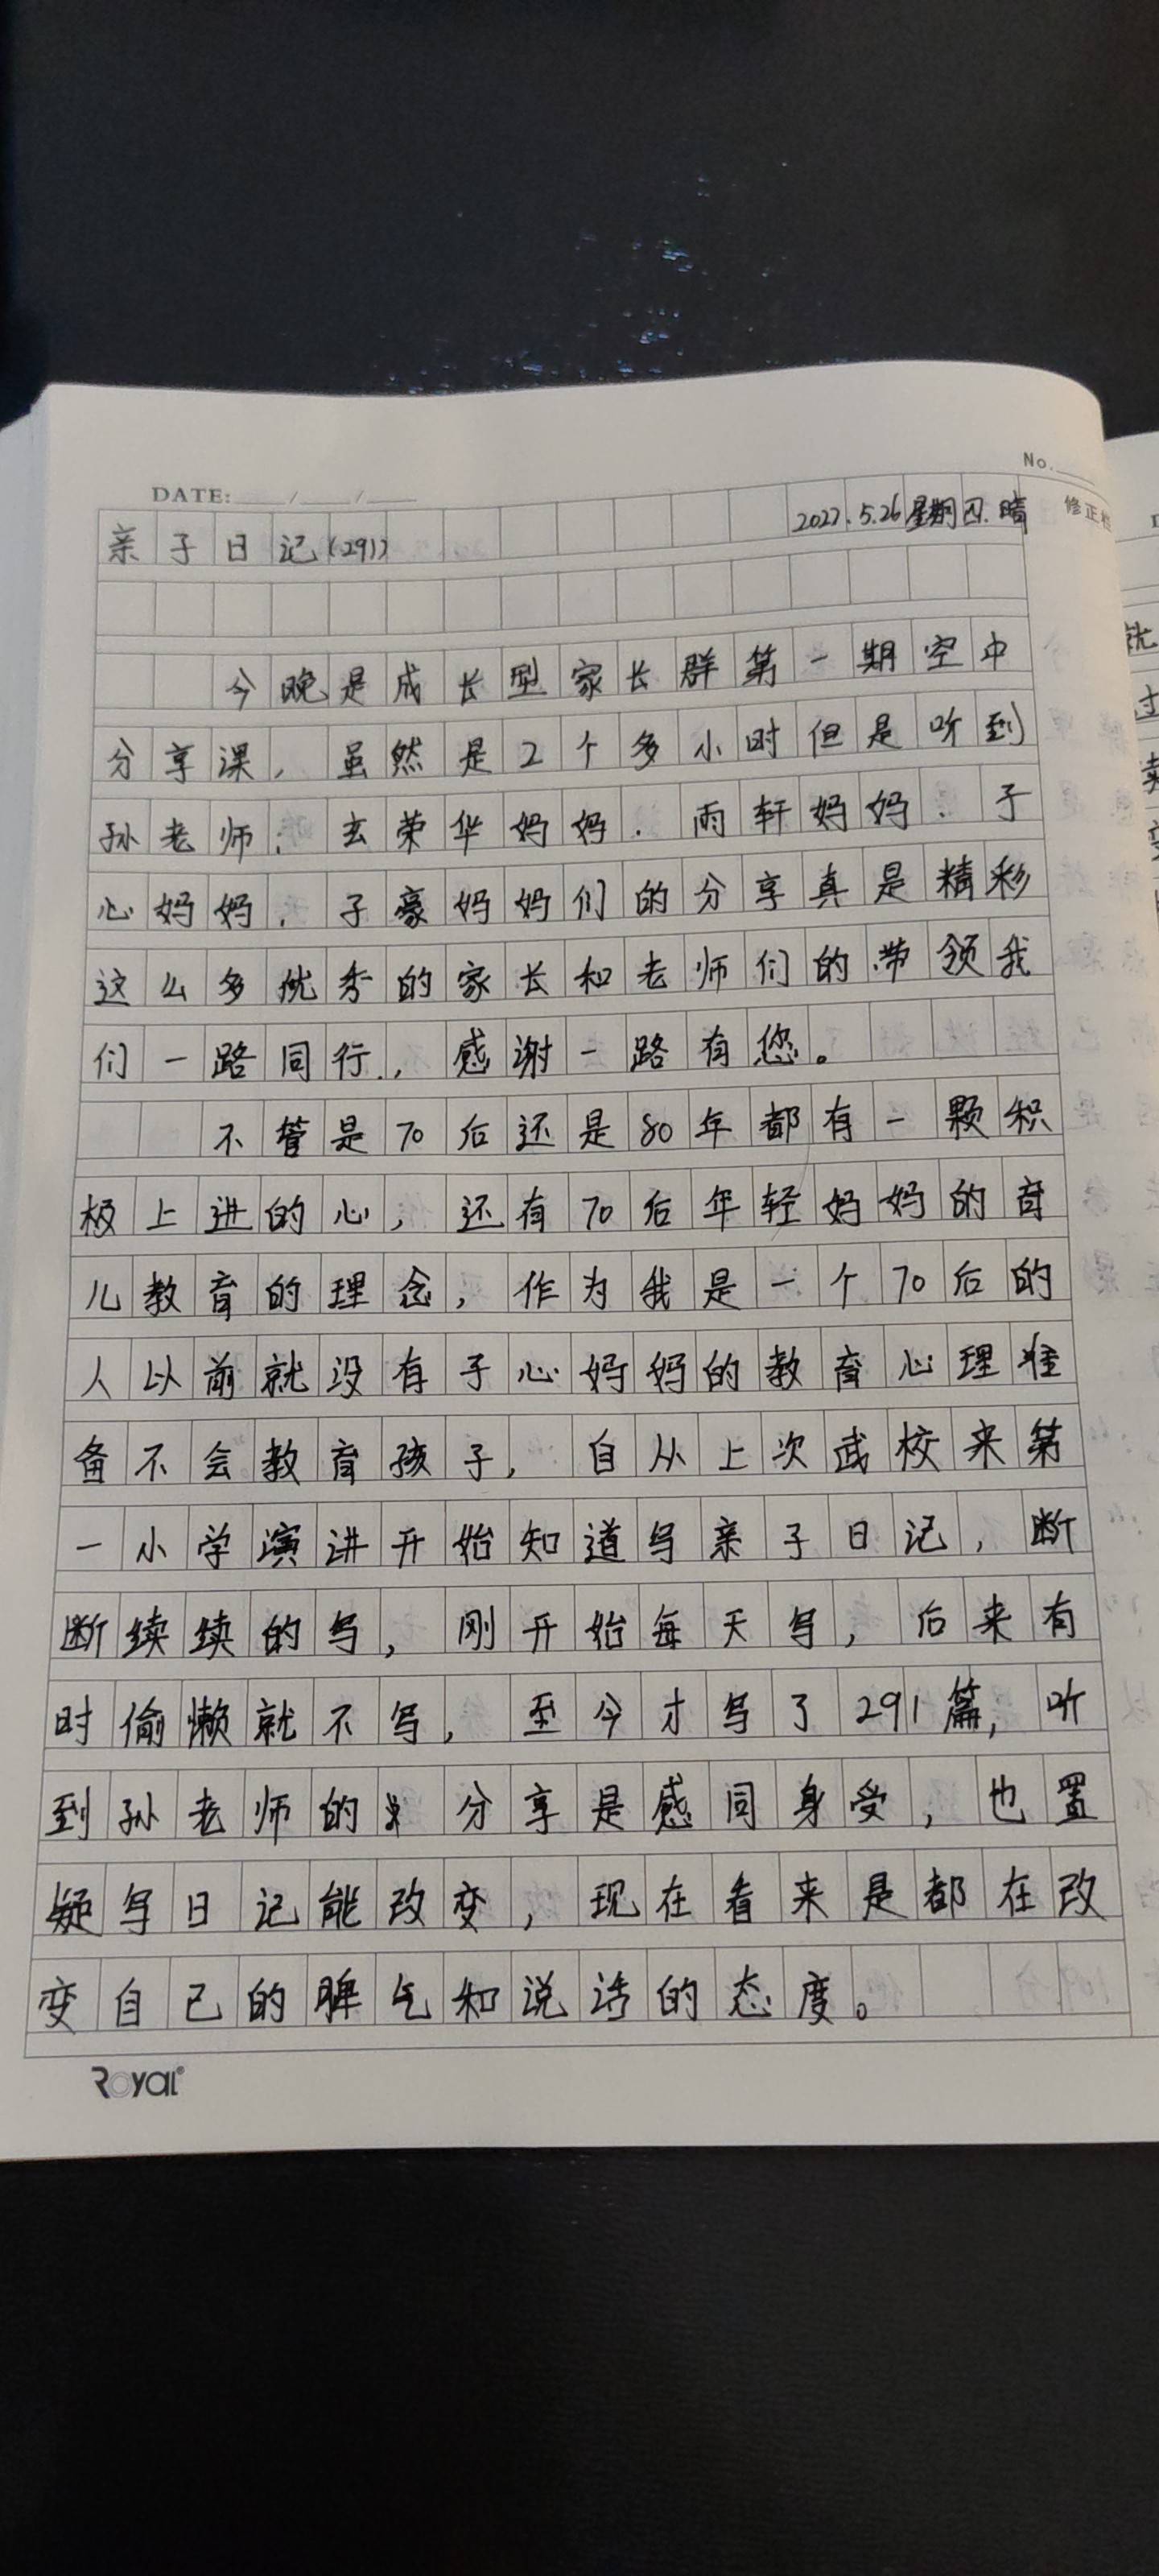 No.
DATE: / /
修正栏
亲子日记(291) 2022.5.26星期四.晴
今晚是成长型家长群第一期空中
分享课，虽然是2个多小时但是听到
孙老师、玄荣华妈妈、雨轩妈妈、子
心妈妈、子豪妈妈们的分享真是精彩
这么多优秀的家长和老师们的带领我
们一路同行，感谢一路有您。
不管是70后还是80年都有一颗积
极上进的心，还有70后年轻妈妈的育
儿教育的理念，作为我是一个70后的
人以前就没有子心妈妈的教育心理准
备不会教育孩子，自从上次武校来第
一小学演讲开始知道写亲子日记，断
断续续的写，刚开始每天写，后来有
时偷懒就不写，至今才写了291篇，听
到孙老师的分享是感同身受，也置
疑写日记能改变，现在看来是都在改
变自己的脾气和说话的态度。
Royal